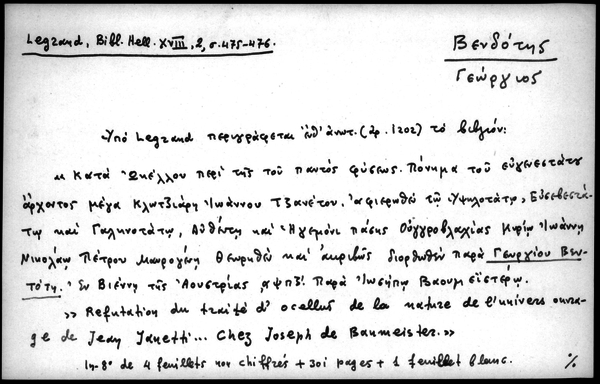 Legrand, Bibl. Hell. XVIII, 2, σ. 475-476.
Βενδότης
Γεώργιος
Ὑπό Legrand περιγράφεται ἐνθ' ἀνωτ. (ἀρ. 1202) τό βιβλίον:
« Κατά Ὠκέλλου περί τῆς τοῦ παντός φύσεως. Πόνημα τοῦ εὐγενεστάτου
ἄρχοντος μέγα Κλουτζιάρη Ἰωάννου Τζανέτου. Ἀφιερωθέν τῷ Ὑψηλοτάτῳ, Εὐσεβεστά-
τῳ καί Γαληνοτάτῳ, Αὐθέντῃ καί Ἡγεμόνι πάσης Οὐγγροβλαχίας Κυρίῳ Ἰωάννῃ
Νικολάῳ Πέτρου Μαυρογένῃ θεωρηθέν καί ἀκριβῶς διορθωθέν παρά Γεωργίου Βεν-
τότη. Ἐν Βιέννῃ τῆς Ἀουστρίας, αψπζ'. Παρά Ἰωσήπῳ Βαουμεϊστέρῳ.
» Refutation du traité d' ocellus de la nature de l'univers ouvra-
ge de Jean Janetti... Chez Joseph de Baumeister.»
In-8° de 4 feuillets non chiffrés + 301 pages + 1 feuillet blanc.
%